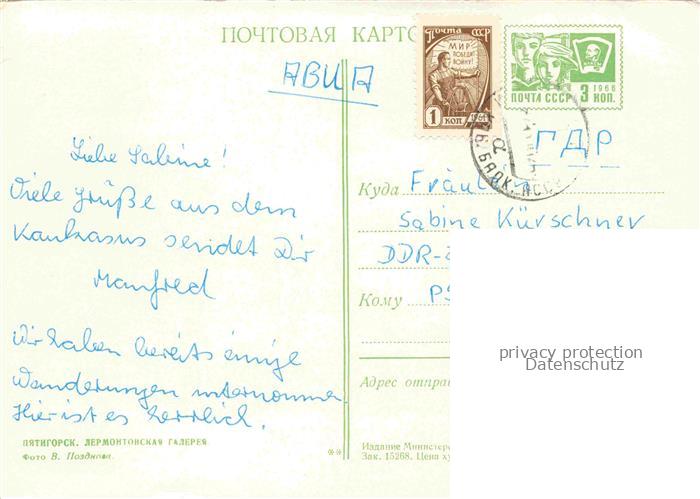 ПОЧТОВАЯ КАРТО
АВИА
Почта СССР
МИР
ПОБЕДИТ
ВОЙНУ!
1 КОП
1961
1966
ПОЧТА СССР 3 КОП.
ГДР
Liebe Sabine!
Viele Grüße aus dem
Kaukasus sendet Dir
Manfred
Wir haben bereits einige
Wanderungen unternommen.
Hier ist es herrlich.
ПЯТИГОРСК. ЛЕРМОНТОВСКАЯ ГАЛЕРЕЯ
Фото В. Позднова.
**
Куда Fräul
Sabine Kürschner
DDR-
Кому
Адрес отправ
Издание Министерс
Зак. 15268. Цена ху
privacy protection
Datenschutz